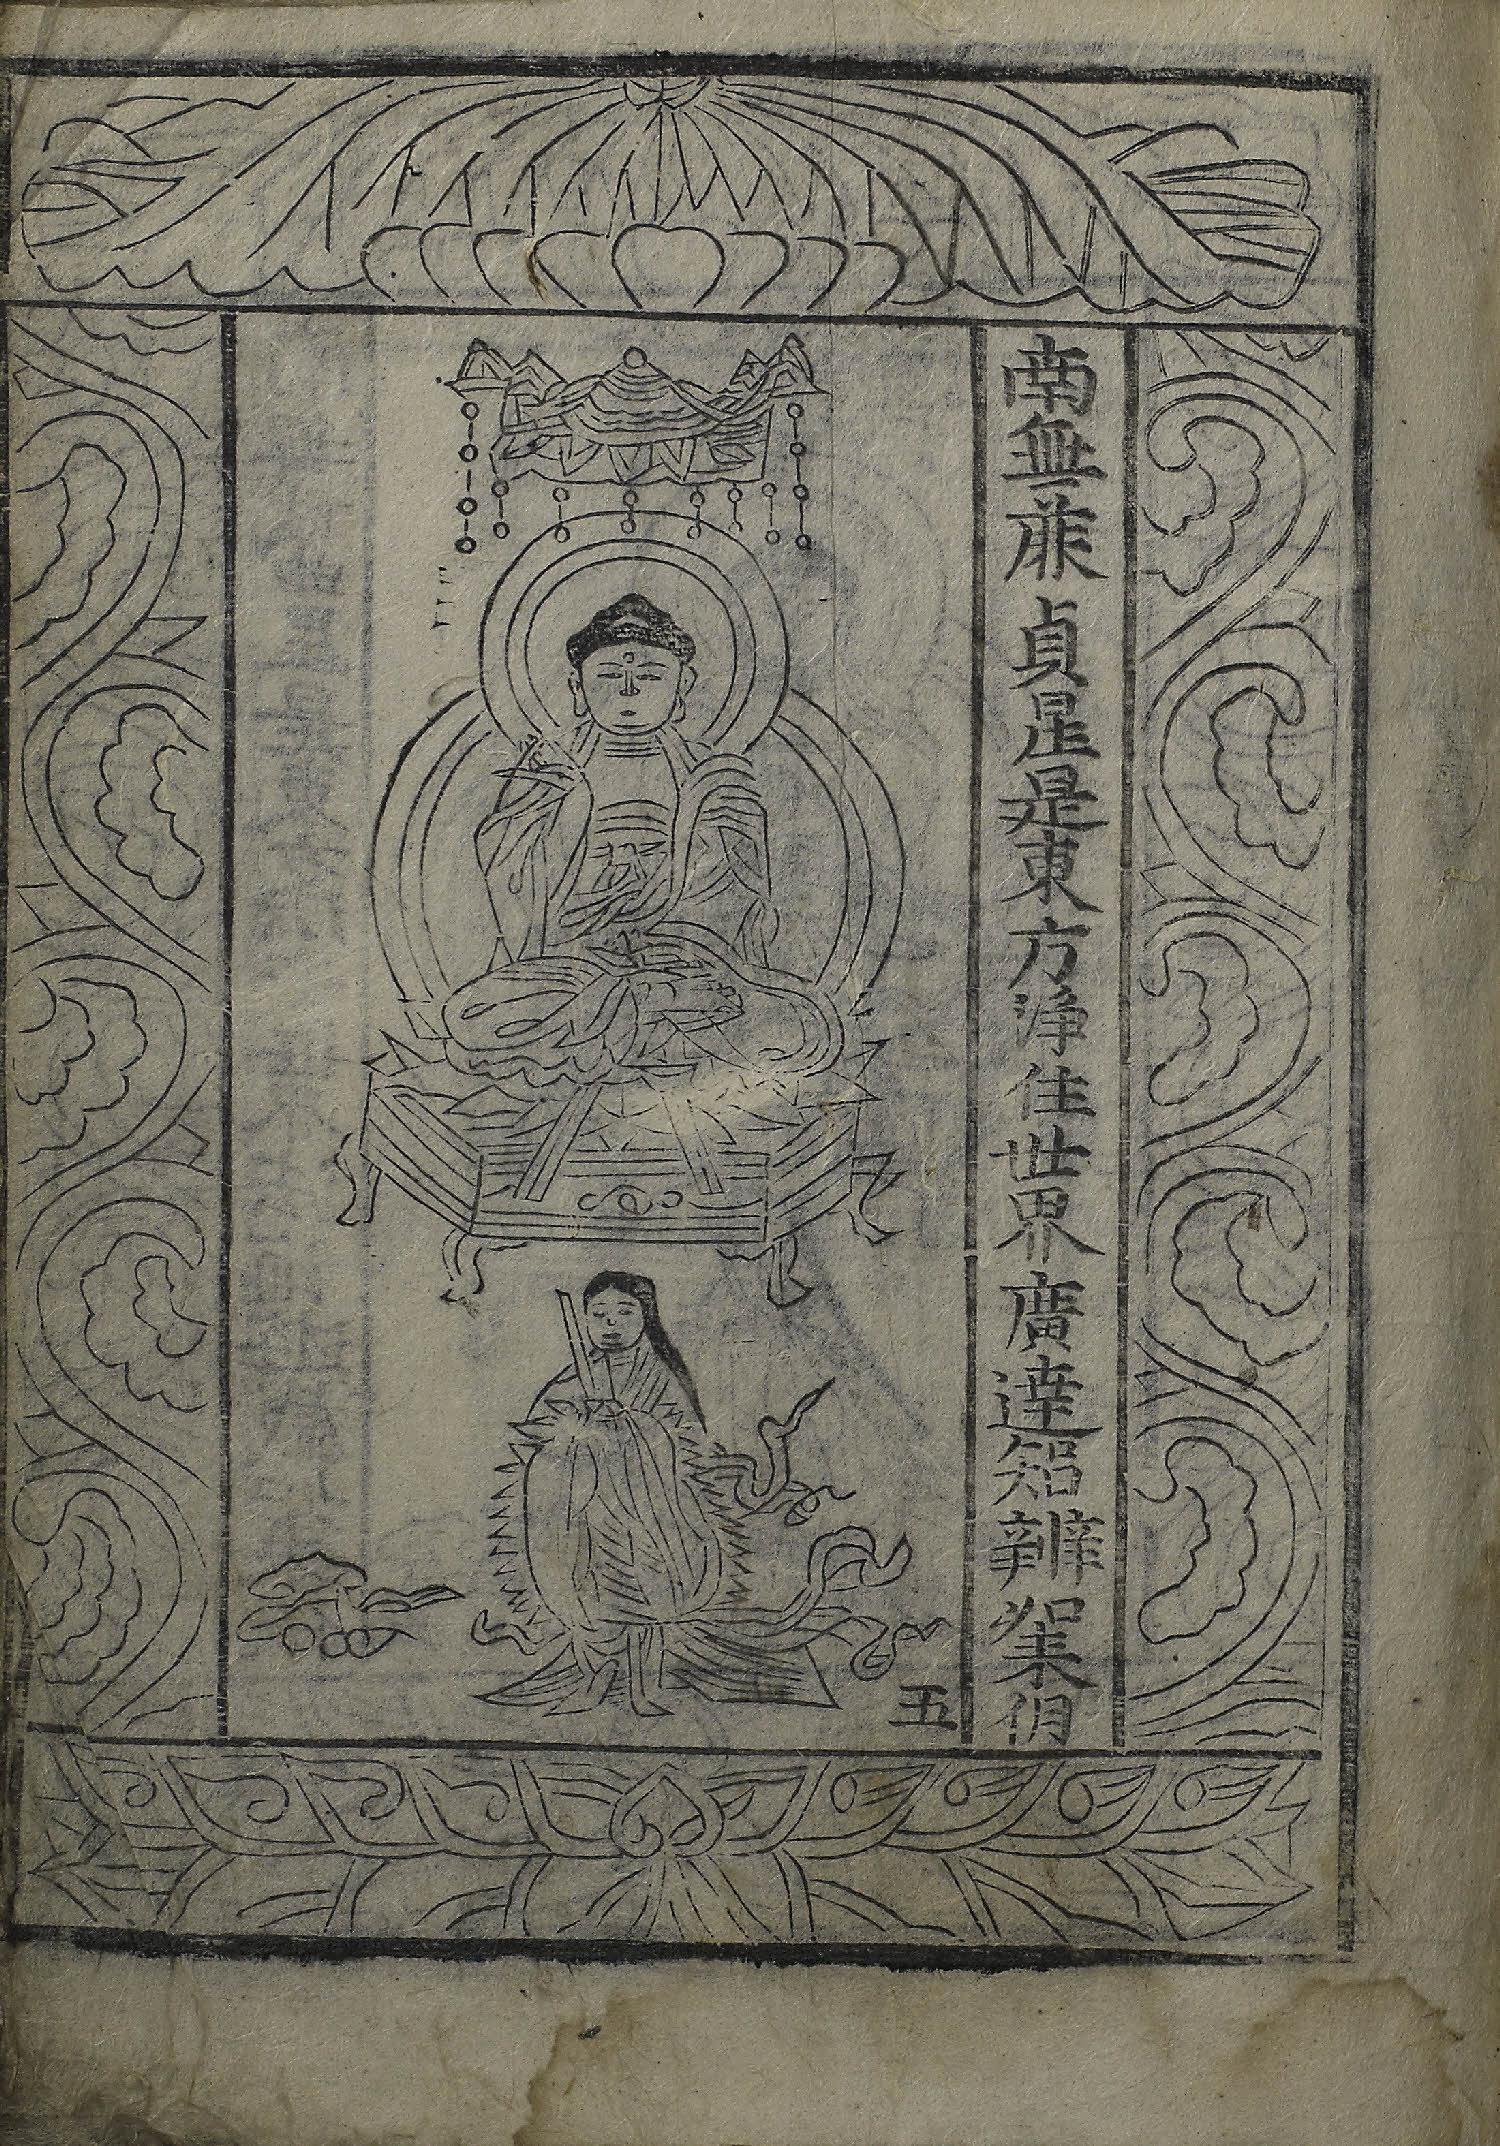 南無廉貞星是東方淨住世界廣達智辨如来佛
五